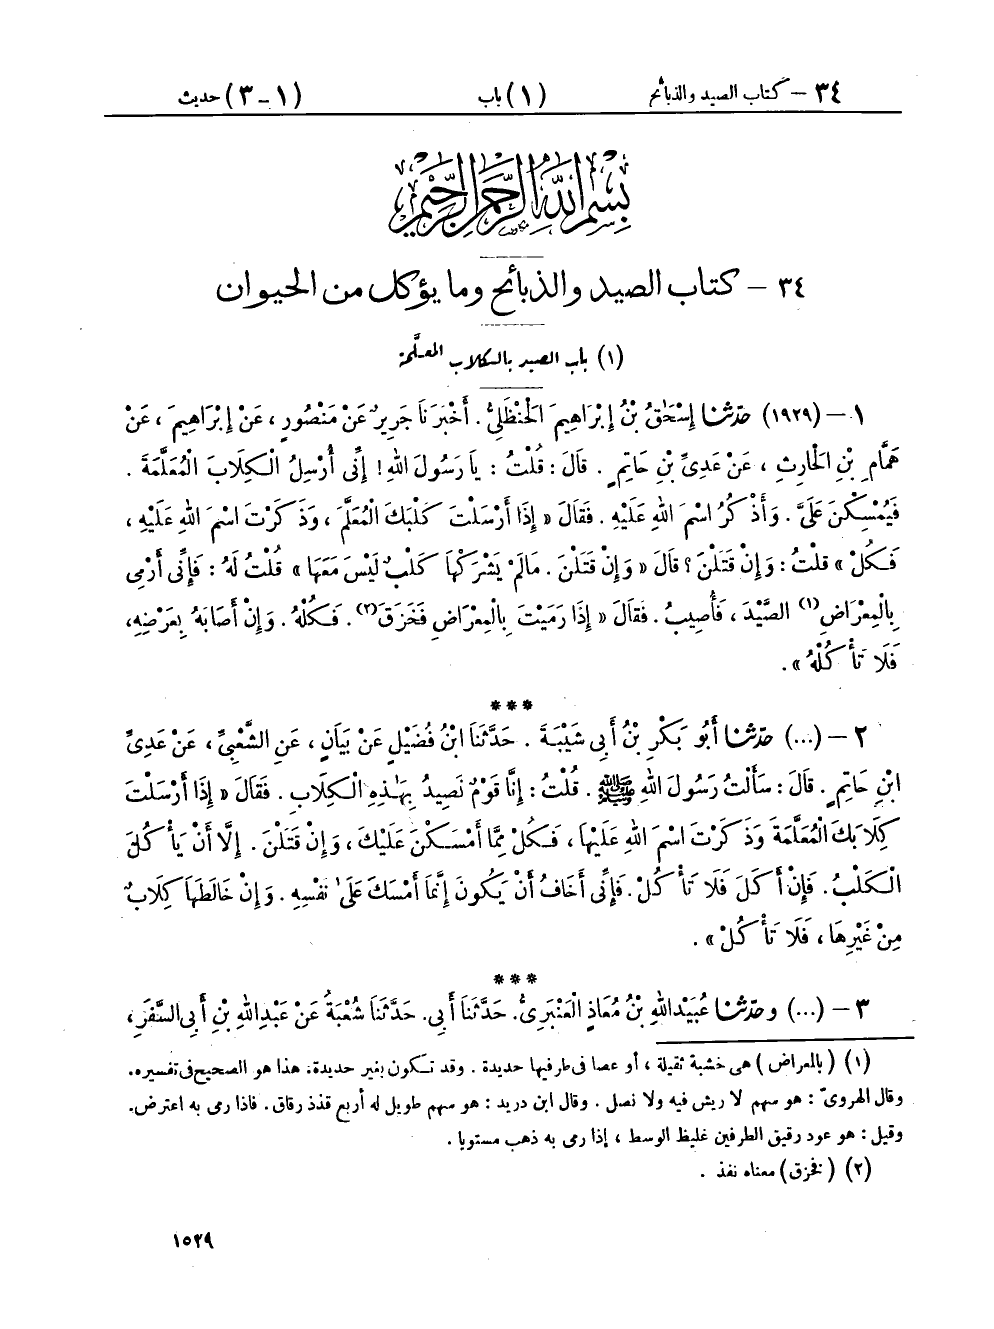 ٣٤ – كتاب الصيد والذبائح (١) باب (١ – ٣) حديث
بِسْمِ اللهِ الرَّحْمٰنِ الرَّحِيْمِ
٣٤ – كتاب الصيد والذبائح وما يؤكل من الحيوان
(١) باب الصيد بالكلاب المعلَّمة
١ – (١٩٢٩) حدّثنا إِسْحَٰقُ بْنُ إِبْرَاهِيمَ الْحَنْظَلِيُّ. أَخْبَرَنَا جَرِيرٌ عَنْ مَنْصُورٍ، عَنْ إِبْرَاهِيمَ، عَنْ
هَمَّامِ بْنِ الْحَارِثِ، عَنْ عَدِىِّ بْنِ حَاتِمٍ. قَالَ: قُلْتُ: يَا رَسُولَ اللهِ! إِنِّى أُرْسِلُ الْكِلَابَ الْمُعَلَّمَةَ.
فَيُمْسِكْنَ عَلَىَّ. وَأَذْكُرُ اسْمَ اللهِ عَلَيْهِ. فَقَالَ « إِذَا أَرْسَلْتَ كَلْبَكَ الْمُعَلَّمَ، وَذَكَرْتَ اسْمَ اللهِ عَلَيْهِ،
فَكُلْ » قُلْتُ: وَإِنْ قَتَلْنَ؟ قَالَ « وَإِنْ قَتَلْنَ. مَالَمْ يَشْرَكْهَا كَلْبٌ لَيْسَ مَعَهَا » قُلْتُ لَهُ: فَإِنِّى أَرْمِى
بِالْمِعْرَاضِ(١) الصَّيْدَ، فَأُصِيبُ. فَقَالَ « إِذَا رَمَيْتَ بِالْمِعْرَاضِ فَخَزَقَ(٢). فَكُلْهُ. وَإِنْ أَصَابَهُ بِعَرْضِهِ،
فَلَا تَأْكُلْهُ ».
***
٢ – (...) حدّثنا أَبُو بَكْرِ بْنُ أَبِى شَيْبَةَ. حَدَّثَنَا ابْنُ فُضَيْلٍ عَنْ بَيَانٍ، عَنِ الشَّعْبِيِّ، عَنْ عَدِىِّ
ابْنِ حَاتِمٍ. قَالَ: سَأَلْتُ رَسُولَ اللهِ ﷺ. قُلْتُ: إِنَّا قَوْمٌ نَصِيدُ بِهَٰذِهِ الْكِلَابِ. فَقَالَ « إِذَا أَرْسَلْتَ
كِلَابَكَ الْمُعَلَّمَةَ وَذَكَرْتَ اسْمَ اللهِ عَلَيْهَا، فَكُلْ مِمَّا أَمْسَكْنَ عَلَيْكَ، وَإِنْ قَتَلْنَ. إِلَّا أَنْ يَأْكُلَ
الْكَلْبُ. فَإِنْ أَكَلَ فَلَا تَأْكُلْ. فَإِنِّى أَخَافُ أَنْ يَكُونَ إِنَّمَا أَمْسَكَ عَلَىٰ نَفْسِهِ. وَإِنْ خَالَطَهَا كِلَابٌ
مِنْ غَيْرِهَا، فَلَا تَأْكُلْ ».
***
٣ – (...) وحدّثنا عُبَيْدُاللهِ بْنُ مُعَاذٍ الْعَنْبَرِىُّ. حَدَّثَنَا أَبِى. حَدَّثَنَا شُعْبَةُ عَنْ عَبْدِاللهِ بْنِ أَبِى السَّفَرِ،
(١) (بالمعراض) هى خشبة ثقيلة، أو عصا فى طرفيها حديدة. وقد تكون بغير حديدة. هذا هو الصحيح فى تفسيره.
وقال الهروىّ: هو سهم لا ريش فيه ولا نصل. وقال ابن دريد: هو سهم طويل له أربع قذذ رقاق. فاذا رمى به اعترض.
وقيل: هو عود رقيق الطرفين غليظ الوسط، إذا رمى به ذهب مستويا.
(٢) (فخزق) معناه نفذ.
١٥٢٩